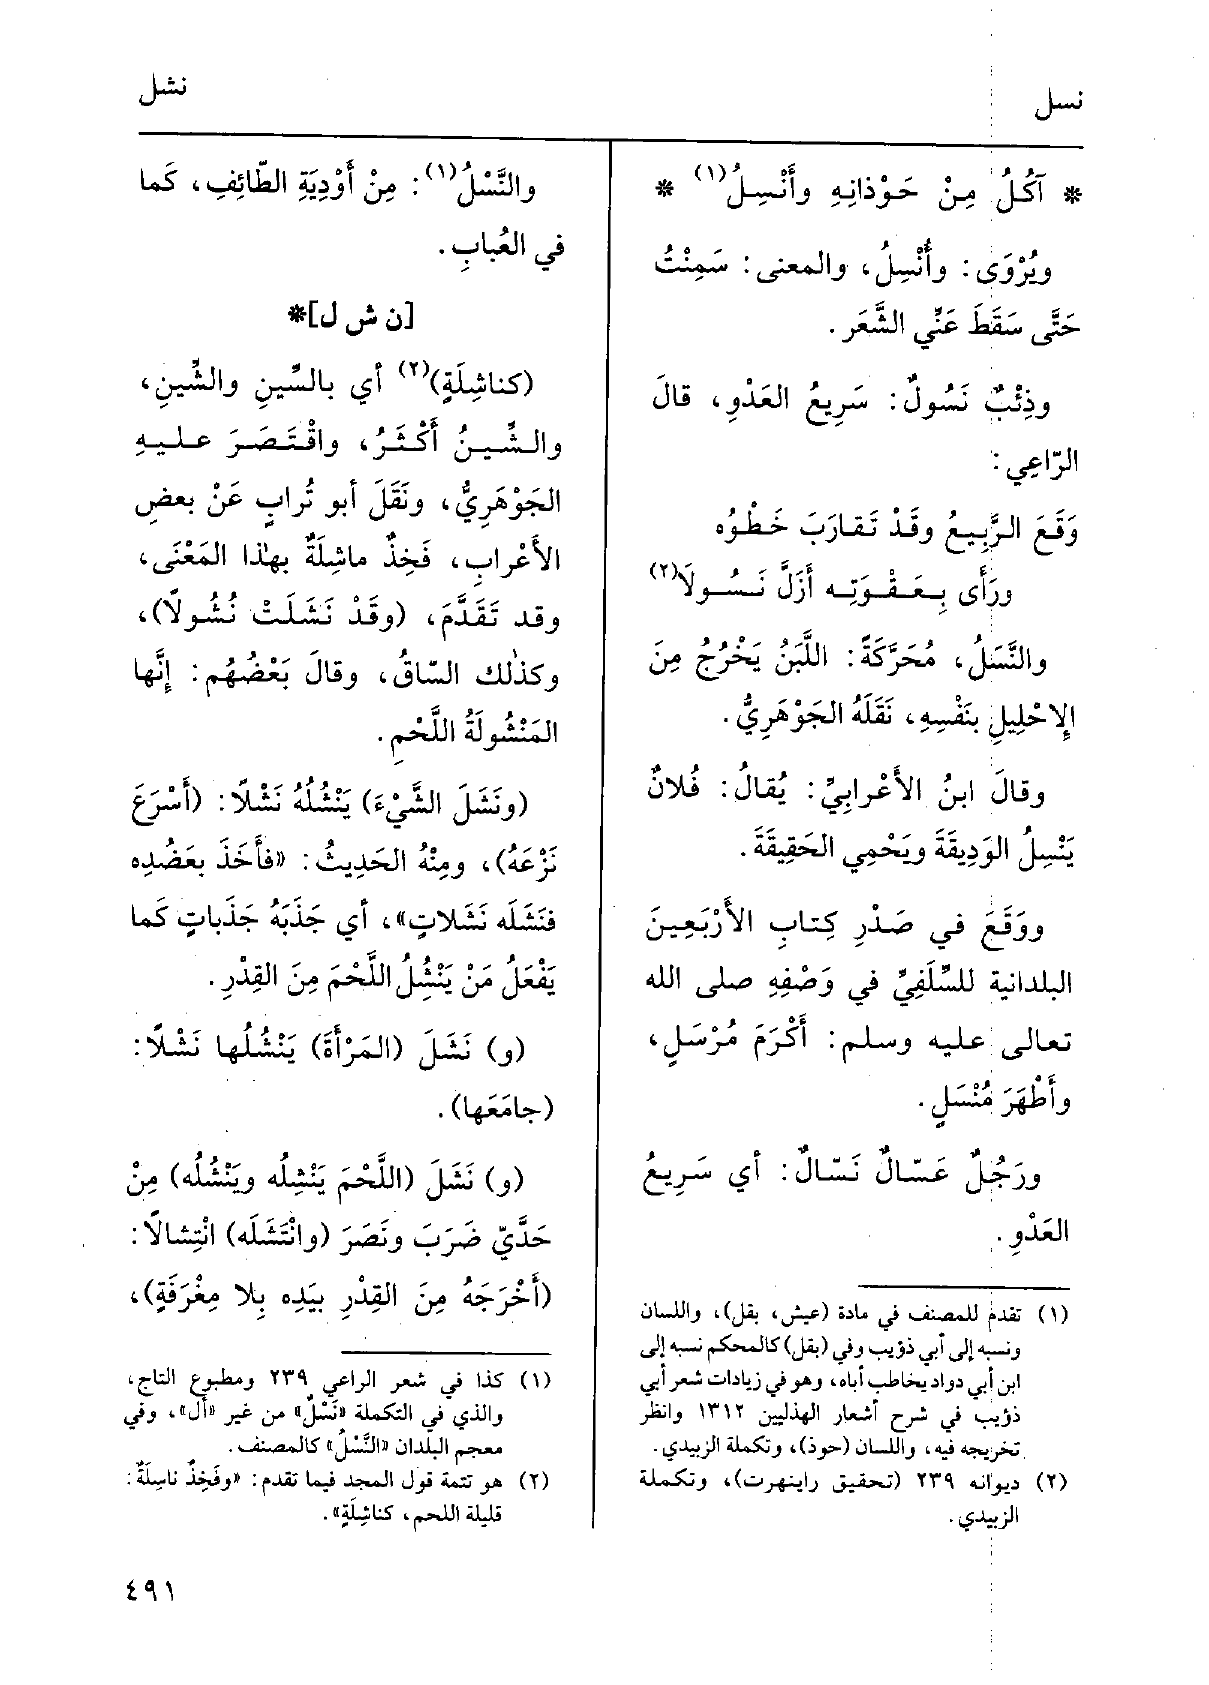 نسل
نشل
* آكُلُ مِنْ حَوْذانِهِ وأَنْسِلُ(١) *
ويُرْوَى: وأُنْسِلُ، والمعنى: سَمِنْتُ
حَتَّى سَقَطَ عَنِّي الشَّعَر.
وذِئْبٌ نَسُولٌ: سَرِيعُ العَدْوِ، قالَ
الرّاعِي:
وَقَعَ الرَّبِيعُ وقَدْ تَقارَبَ خَطْوُه
ورَأَى بِعَقْوَتِه أَزَلَّ نَسُولَا(٢)
والنَّسَلُ، مُحَرَّكَةً: اللَّبَنُ يَخْرُجُ مِنَ
الإِحْلِيلِ بنَفْسِهِ، نَقَلَهُ الجَوْهَرِيُّ.
وقالَ ابنُ الأَعْرابِيِّ: يُقالُ: فُلانٌ
يَنْسِلُ الوَدِيقَةَ ويَحْمِي الحَقِيقَةَ.
ووَقَعَ في صَدْرِ كِتابِ الأَرْبَعِينَ
البلدانية للسِّلَفِيِّ في وَصْفِهِ صلى الله
تعالى عليه وسلم: أَكْرَمَ مُرْسَلٍ،
وأَطْهَرَ مُنْسَلٍ.
ورَجُلٌ عَسّالٌ نَسّالٌ: أي سَرِيعُ
العَدْوِ.
(١) تقدم للمصنف في مادة (عيش، بقل)، واللسان
ونسبه إلى أبي ذؤيب وفي (بقل) كالمحكم نسبه إلى
ابن أبي دواد يخاطب أباه، وهو في زيادات شعر أبي
ذؤيب في شرح أشعار الهذليين ١٣١٢ وانظر
تخريجه فيه، واللسان (حوذ)، وتكملة الزبيدي.
(٢) ديوانه ٢٣٩ (تحقيق راينهرت)، وتكملة
الزبيدي.
والنَّسْلُ(١): مِنْ أَوْدِيَةِ الطّائِفِ، كَما
في العُبابِ.
[ن ش ل]*
(كناشِلَةٍ)(٢) أي بالسِّينِ والشِّينِ،
والشِّينُ أَكْثَرُ، واقْتَصَرَ عليهِ
الجَوْهَرِيُّ، ونَقَلَ أبو تُرابٍ عَنْ بعضِ
الأَعْرابِ، فَخِذٌ ماشِلَةٌ بهٰذا المَعْنَى،
وقد تَقَدَّمَ، (وقَدْ نَشَلَتْ نُشُولاً)،
وكذٰلك السّاقُ، وقالَ بَعْضُهُم: إِنَّها
المَنْشُولَةُ اللَّحْمِ.
(ونَشَلَ الشَّيْءَ) يَنْشُلُهُ نَشْلًا: (أَسْرَعَ
نَزْعَهُ)، ومِنْهُ الحَدِيثُ: «فأَخَذَ بعَضُدِه
فنَشَلَه نَشَلاتٍ»، أي جَذَبَهُ جَذَباتٍ كَما
يَفْعَلُ مَنْ يَنْشِلُ اللَّحْمَ مِنَ القِدْرِ.
(و) نَشَلَ (المَرْأَةَ) يَنْشُلُها نَشْلًا:
(جامَعَها).
(و) نَشَلَ (اللَّحْمَ يَنْشِلُه ويَنْشُلُه) مِنْ
حَدَّيْ ضَرَبَ ونَصَرَ (وانْتَشَلَه) انْتِشالًا:
(أَخْرَجَهُ مِنَ القِدْرِ بيَدِه بِلا مِغْرَفَةٍ)،
(١) كذا في شعر الراعي ٢٣٩ ومطبوع التاج،
والذي في التكملة «نَسْلٌ» من غير «أل»، وفي
معجم البلدان «النَّسْلُ» كالمصنف.
(٢) هو تتمة قول المجد فيما تقدم: «وفَخِذٌ ناسِلَةٌ:
قليلة اللحم، كناشِلَةٍ».
٤٩١